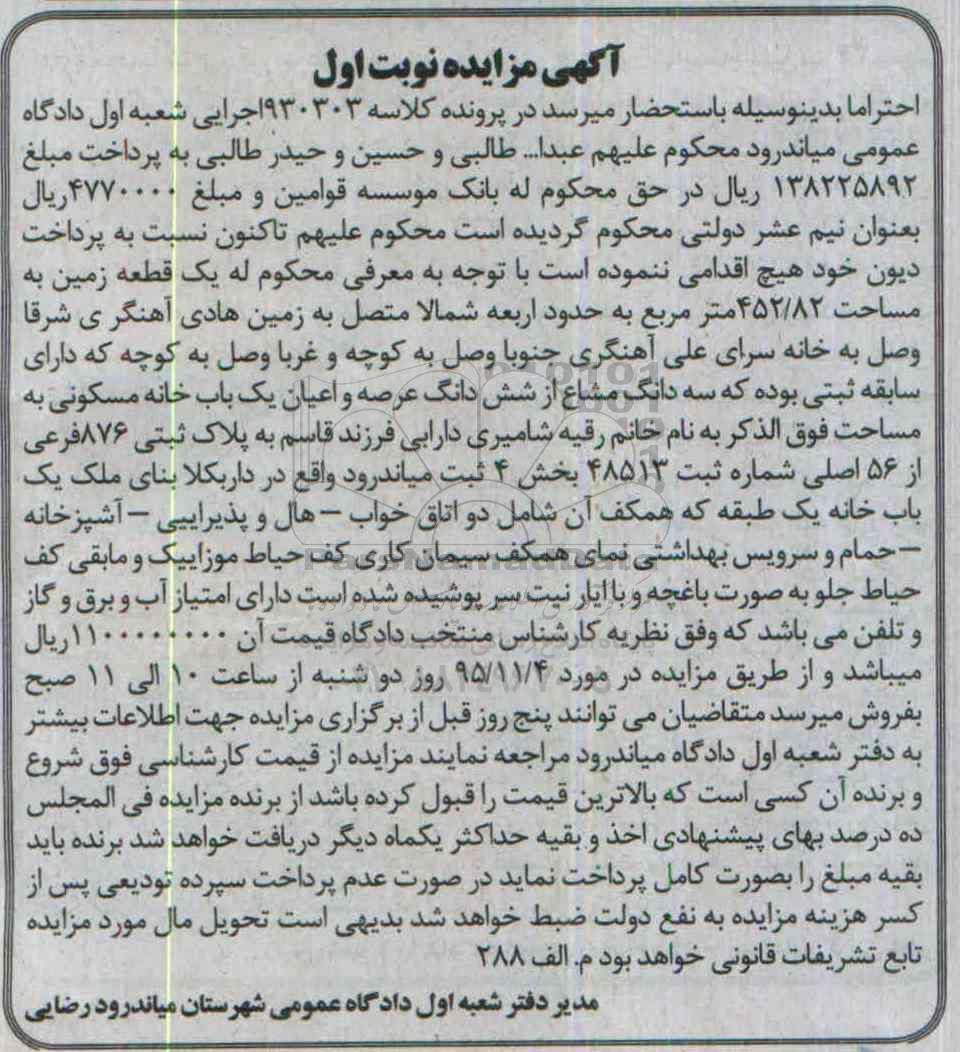 آگهی مزایده نوبت اول
احتراما بدینوسیله باستحضار میرسد در پرونده کلاسه ۹۳۰۳۰۳اجرایی شعبه اول دادگاه
عمومی میاندرود محکوم علیهم عبدا... طالبی و حسین و حیدر طالبی به پرداخت مبلغ
۱۳۸۲۲۵۸۹۲ ریال در حق محکوم له بانک موسسه قوامین و مبلغ ۴۷۷۰۰۰۰ریال
بعنوان نیم عشر دولتی محکوم گردیده است محکوم علیهم تاکنون نسبت به پرداخت
دیون خود هیچ اقدامی ننموده است با توجه به معرفی محکوم له یک قطعه زمین به
مساحت ۴۵۲/۸۲متر مربع به حدود اربعه شمالا متصل به زمین هادی آهنگر ی شرقا
وصل به خانه سرای علی آهنگری جنوبا وصل به کوچه و غربا وصل به کوچه که دارای
سابقه ثبتی بوده که سه دانگ مشاع از شش دانگ عرصه و اعیان یک باب خانه مسکونی به
مساحت فوق الذکر به نام خانم رقیه شامیری دارابی فرزند قاسم به پلاک ثبتی ۸۷۶فرعی
از ۵۶ اصلی شماره ثبت ۴۸۵۱۳ بخش ۴ ثبت میاندرود واقع در داربکلا بنای ملک یک
باب خانه یک طبقه که همکف آن شامل دو اتاق خواب – هال و پذیرایی – آشپزخانه
– حمام و سرویس بهداشتی نمای همکف سیمان کاری کف حیاط موزاییک و مابقی کف
حیاط جلو به صورت باغچه و با ایار نیت سر پوشیده شده است دارای امتیاز آب و برق و گاز
و تلفن می باشد که وفق نظریه کارشناس منتخب دادگاه قیمت آن ۱۱۰۰۰۰۰۰۰۰ریال
میباشد و از طریق مزایده در مورد ۹۵/۱۱/۴ روز دو شنبه از ساعت ۱۰ الی ۱۱ صبح
بفروش میرسد متقاضیان می توانند پنج روز قبل از برگزاری مزایده جهت اطلاعات بیشتر
به دفتر شعبه اول دادگاه میاندرود مراجعه نمایند مزایده از قیمت کارشناسی فوق شروع
و برنده آن کسی است که بالاترین قیمت را قبول کرده باشد از برنده مزایده فی المجلس
ده درصد بهای پیشنهادی اخذ و بقیه حداکثر یکماه دیگر دریافت خواهد شد برنده باید
بقیه مبلغ را بصورت کامل پرداخت نماید در صورت عدم پرداخت سپرده تودیعی پس از
کسر هزینه مزایده به نفع دولت ضبط خواهد شد بدیهی است تحویل مال مورد مزایده
تابع تشریفات قانونی خواهد بود م. الف ۲۸۸
مدیر دفتر شعبه اول دادگاه عمومی شهرستان میاندرود رضایی